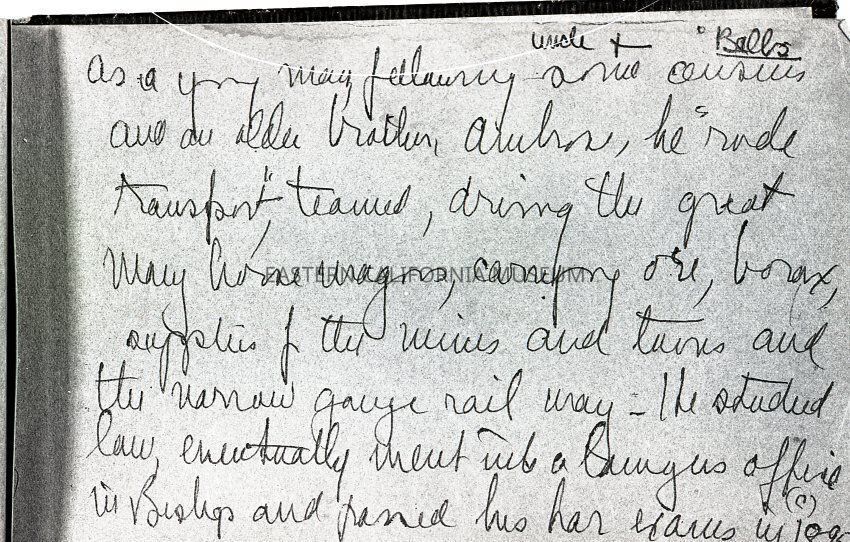 uncle + "Balbs
As a young man, following some cousins
and an older brother, Ambrose, he "rode
transport", teamed, driving the great
many horse wagons, carrying ore, borax,
EASTERN CALIFORNIA MUSEUM
supplies f the mines and towns and
the narrow gauge rail way - He studied
law, eventually went into a lawyers office
in Bishop and passed his bar exams in
(?)